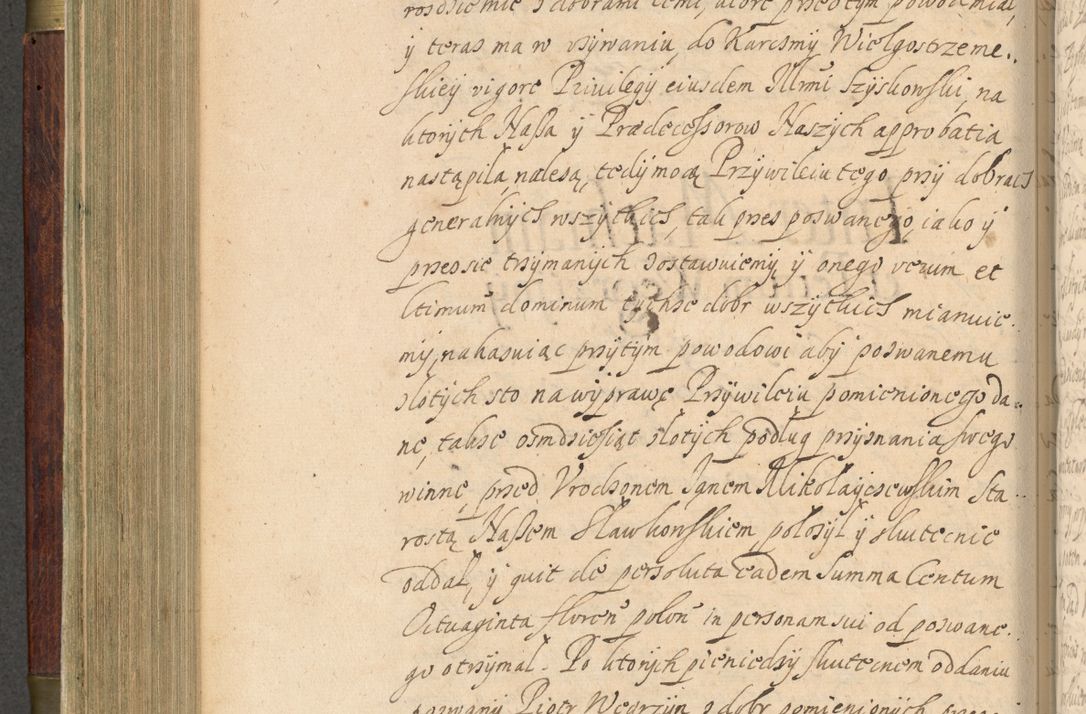 rosdzie mie z dobrami temi, ktore przed tym powod mial,
ÿ teras ma w vzÿwaniu, do Karczmÿ Wielgostrzeme..
skieÿ vigore Priuilegÿ eiusdem Illrmi Szÿskowski, na
ktorÿch Naßa ÿ Prædecessorow Naszÿch approbatia
nastąpiła nalezą, tedÿ mocą Przÿwileiu tego przÿ dobrach
generalnÿch wszÿtkich, tak przes poswanego, iako ÿ
przeosie trzÿmanÿch zostawuiemÿ ÿ onego verum et
ltimum dominum tÿchze dobr wszÿtkich mianuie.
mÿ, nakasuiąc przÿtÿm powodowi abÿ poswanemu
zlotÿch sto na wÿprawę Przÿwileiu pomienionego da..
nę, takze osmdziesiąt zlotÿch podług przÿznania swego
winnę, przed Vrodzonem Janem Mikołaÿczewskim Sta..
rostą Naßem Sławkowskiem położÿł ÿ skutecnie
oddał, ÿ quit de persoluta eadem Summa Centum
Octuaginta floren polon in personam sui od poswane..
go otrzÿmal. Po ktorÿch pieniedzÿ skutecnem oddaniu
pozwanÿ Piotr Węgrzÿn z dobr pomienionÿch